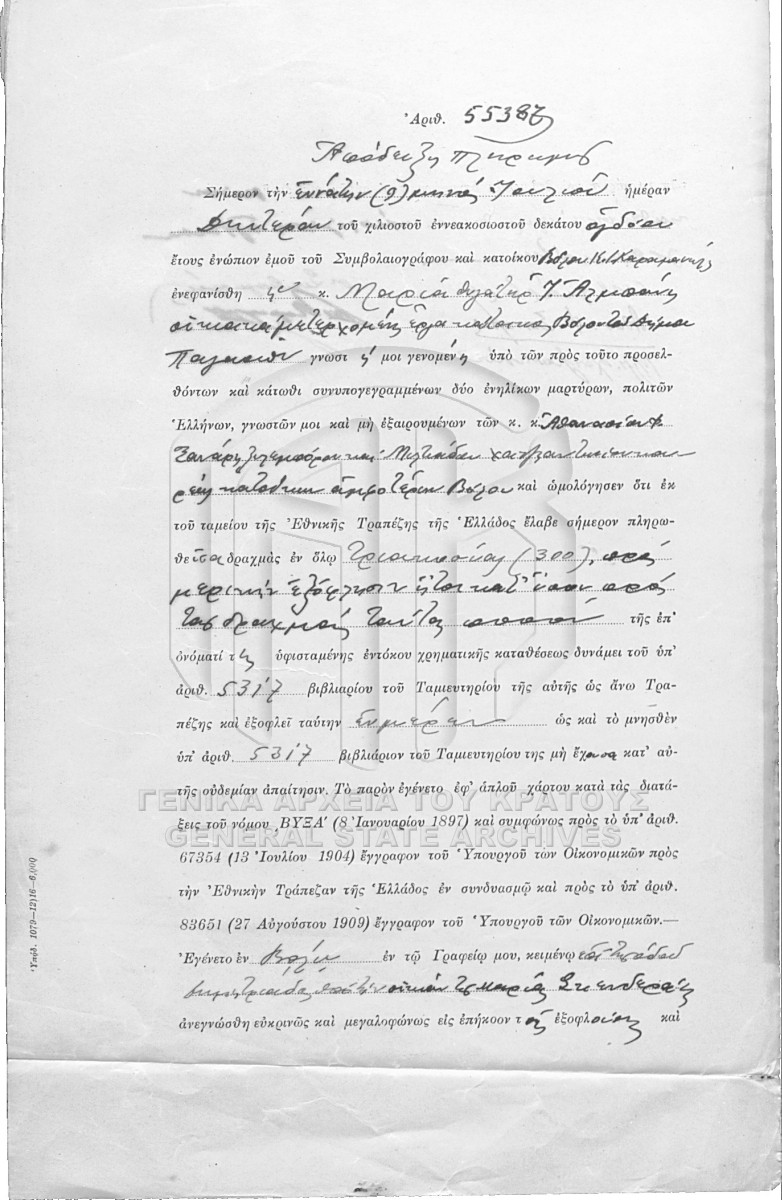 Ἀριθ. 55387
Ἀπόδειξις πληρωμῆς
Σήμερον τὴν ἐννάτην (9) μηνὸς Ἰουλίου ἡμέραν
Δευτέραν τοῦ χιλιοστοῦ ἐννεακοσιοστοῦ δεκάτου ὀγδόου
ἔτους ἐνώπιον ἐμοῦ τοῦ Συμβολαιογράφου καὶ κατοίκου Βόλου
ἐνεφανίσθη ἡ κ. Μαρία θυγάτηρ Ἰ.
οἰκιακὰ μετερχομένη ἔργα κάτοικος Βόλου τοῦ Δήμου
Παγασῶν γνωστὴ μοι γενομένη ὑπὸ τῶν πρὸς τοῦτο προσελ-
θόντων καὶ κάτωθι συνυπογεγραμμένων δύο ἐνηλίκων μαρτύρων, πολιτῶν
Ἑλλήνων, γνωστῶν μοι καὶ μὴ ἐξαιρουμένων τῶν κ. κ. Ἀθανασίου
καὶ Μιλτιάδου
κατοίκων ἀμφοτέρων Βόλου καὶ ὡμολόγησεν ὅτι ἐκ
τοῦ ταμείου τῆς Ἐθνικῆς Τραπέζης τῆς Ἑλλάδος ἔλαβε σήμερον πληρω-
θεῖσα δραχμὰς ἐν ὅλῳ τριακοσίας (300), πρὸς
μερικὴν ἐξόφλησιν ἤτοι κατ' ὅσον πρὸς
τὰς δραχμὰς ταύτας ποσοῦ τῆς ἐπ'
ὀνόματί τῆς ὑφισταμένης ἐντόκου χρηματικῆς καταθέσεως δυνάμει τοῦ ὑπ'
ἀριθ. 5317 βιβλιαρίου τοῦ Ταμιευτηρίου τῆς αὐτῆς ὡς ἄνω Τρα-
πέζης καὶ ἐξοφλεῖ ταύτην ὡς καὶ τὸ μνησθὲν
ὑπ' ἀριθ. 5317 βιβλιάριον τοῦ Ταμιευτηρίου της μὴ ἔχουσα κατ' αὐ-
τῆς οὐδεμίαν ἀπαίτησιν. Τὸ παρὸν ἐγένετο ἐφ' ἁπλοῦ χάρτου κατὰ τὰς διατά-
ΓΕΝΙΚΑ ΑΡΧΕΙΑ ΤΟΥ ΚΡΑΤΟΥΣ
ξεις τοῦ νόμου ͵ΒΥΞΑ΄ (8 Ἰανουαρίου 1897) καὶ συμφώνως πρὸς τὸ ὑπ' ἀριθ.
GENERAL STATE ARCHIVES
67354 (13 Ἰουλίου 1904) ἔγγραφον τοῦ Ὑπουργοῦ τῶν Οἰκονομικῶν πρὸς
τὴν Ἐθνικὴν Τράπεζαν τῆς Ἑλλάδος ἐν συνδυασμῷ καὶ πρὸς τὸ ὑπ' ἀριθ.
83651 (27 Αὐγούστου 1909) ἔγγραφον τοῦ Ὑπουργοῦ τῶν Οἰκονομικῶν.—
Ἐγένετο ἐν Βόλῳ ἐν τῷ Γραφείῳ μου, κειμένῳ ἐπὶ τῆς ὁδοῦ
Δημητριάδος ὑπὸ τὴν οἰκίαν τῆς Μαρίας
ἀνεγνώσθη εὐκρινῶς καὶ μεγαλοφώνως εἰς ἐπήκοον τῆς ἐξοφλούσης καὶ